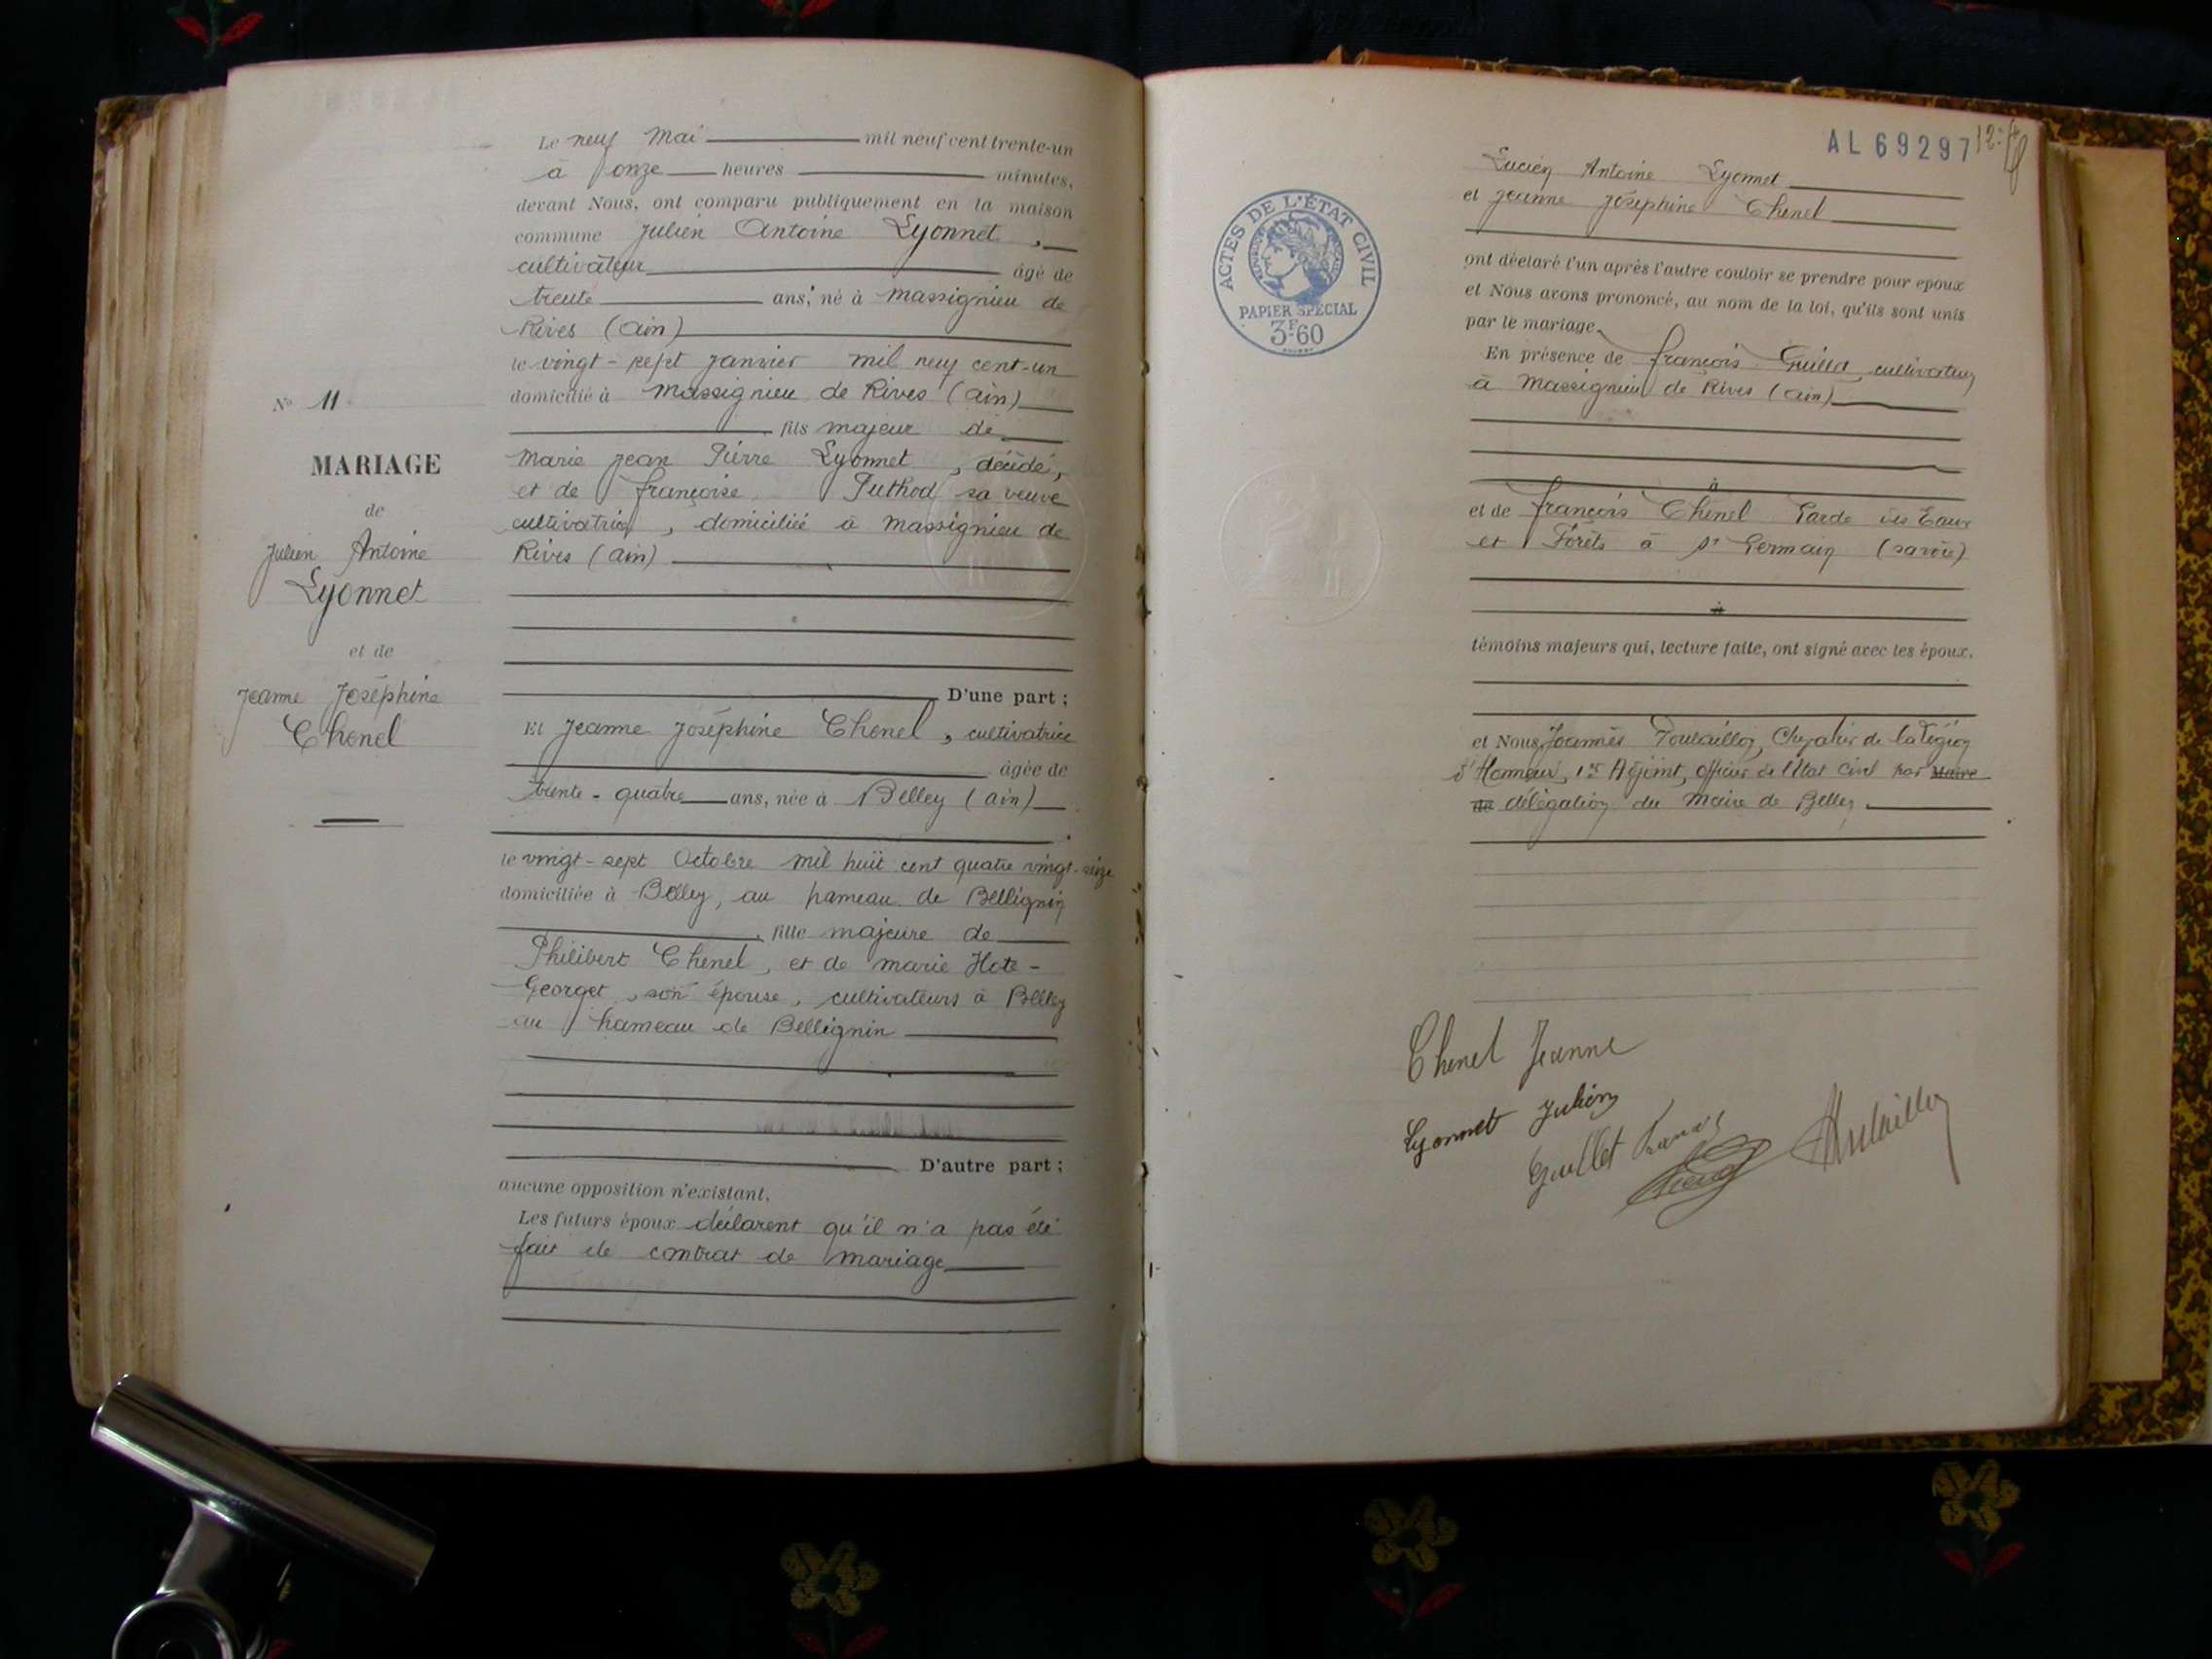 Le neuf Mai mil neuf cent trente-un
à onze heures minutes,
devant Nous, ont comparu publiquement en la maison
commune Julien Antoine Lyonnet,
cultivateur âgé de
trente ans, né à Massignieu de
Rives (Ain)
le vingt-sept Janvier mil neuf cent-un
domicilié à Massignieu de Rives (Ain)
fils majeur de
Marie Jean Pierre Lyonnet, décédé,
et de Françoise Puthod sa veuve
cultivatrice, domiciliée à Massignieu de
Rives (Ain)
D'une part ;
Et Jeanne Joséphine Chenel, cultivatrice
âgée de
trente-quatre ans, née à Belley (Ain)
le vingt-sept Octobre mil huit cent quatre vingt-seize
domiciliée à Belley, au hameau de Bellignin
fille majeure de
Philibert Chenel, et de Marie Hote-
Georget, son épouse, cultivateurs à Belley
au hameau de Bellignin
D'autre part ;
aucune opposition n'existant,
Les futurs époux déclarent qu'il n'a pas été
fait de contrat de mariage
No 11
MARIAGE
de
Julien Antoine
Lyonnet
et de
Jeanne Joséphine
Chenel
AL 69297
ACTES DE L'ÉTAT CIVIL
PAPIER SPÉCIAL
3F60
Lucien Antoine Lyonnet
et Jeanne Joséphine Chenel
ont déclaré l'un après l'autre vouloir se prendre pour époux
et Nous avons prononcé, au nom de la loi, qu'ils sont unis
par le mariage.
En présence de François Guillet, cultivateur
à Massignieu de Rives (Ain)
à
et de François Chenel Garde des Eaux
et Forêts à St Germain (Savoie)
à
témoins majeurs qui, lecture faite, ont signé avec les époux.
et Nous, Joannès Chevalier de la Légion
d'Honneur, 1er Adjoint, officier de l'Etat Civil par Maire
de délégation du Maire de Belley
Chenel Jeanne
Lyonnet Julien
Guillet